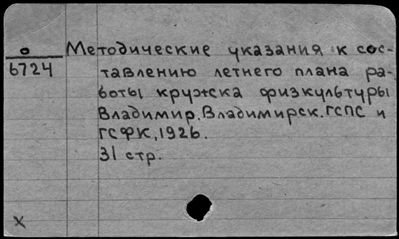 о
6724
Методические указания к сос-
тавлению летнего плана ра-
боты кружка физкультуры
Владимир. Владимирск. ГСПС и
ГСФК, 1926.
31 стр.
х